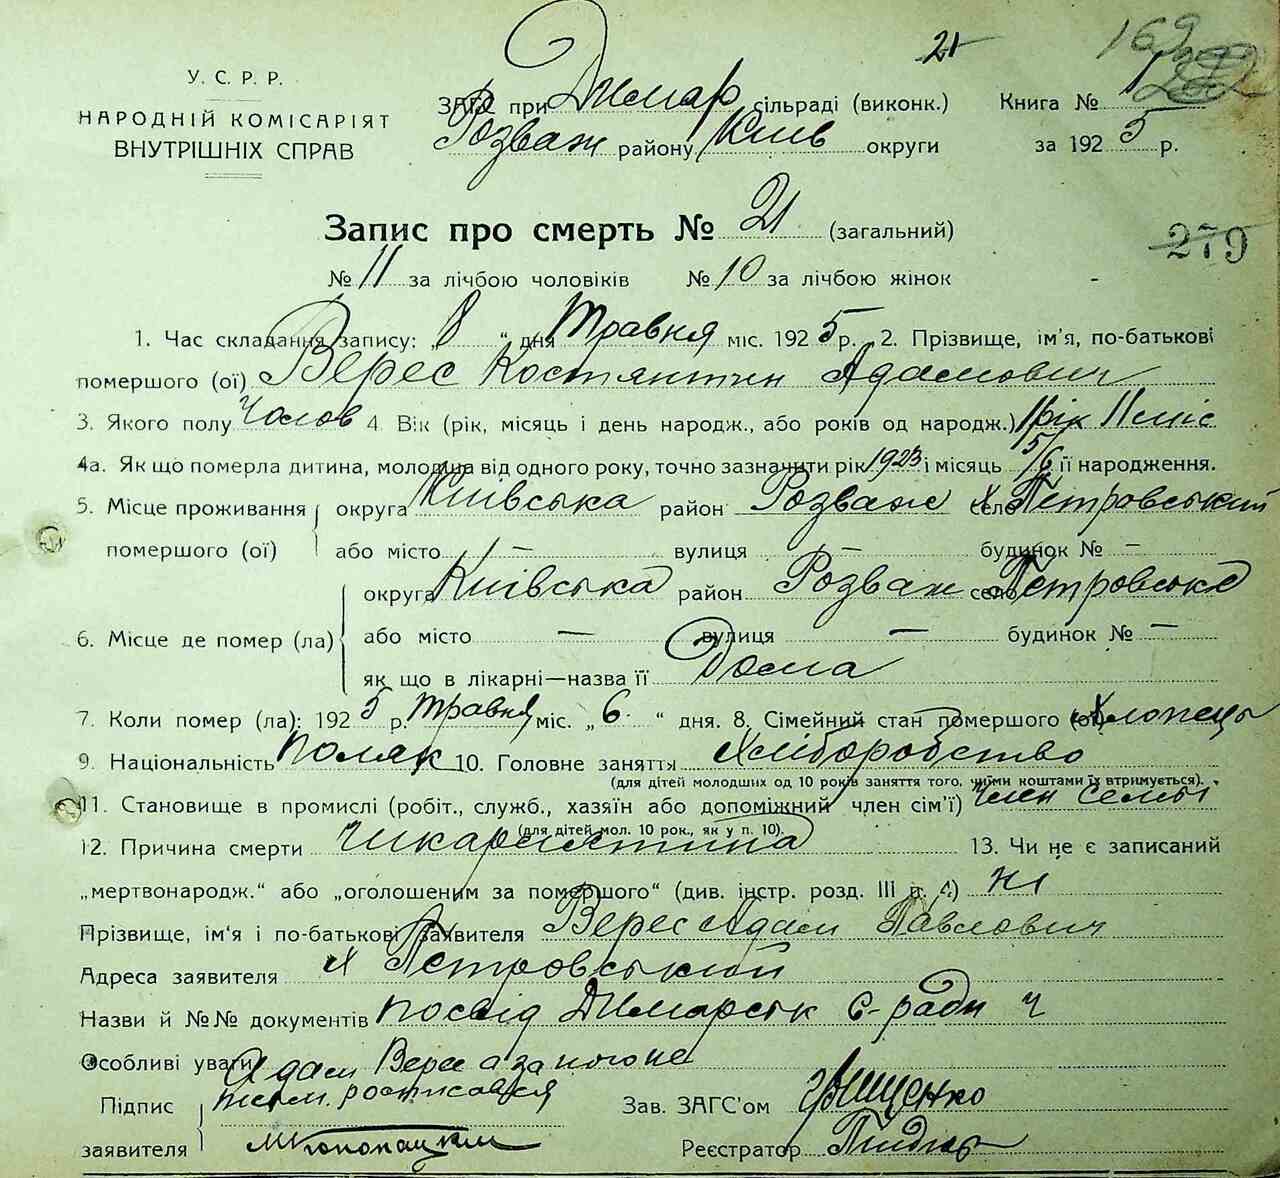 21
169
У. С. Р. Р.
НАРОДНІЙ КОМІСАРІЯТ
ВНУТРІШНІХ СПРАВ
ЗАГС при Димар сільраді (виконк.) Книга № 1
Розваж району Київ округи за 1925 р.
Запис про смерть № 21 (загальний)
279
№ 11 за лічбою чоловіків № 10 за лічбою жінок
1. Час складання запису: „8“ дня Травня міс. 1925 р. 2. Прізвище, ім'я, по-батькові
помершого (ої) Верес Костянтин Адамович
3. Якого полу Чолов 4. Вік (рік, місяць і день народж., або років од народж.) 1 рік 11 міс
4а. Як що померла дитина, молодша від одного року, точно зазначити рік 1923 і місяць 5/6 її народження.
5. Місце проживання округа Київська район Розваж село х Петровський
помершого (ої) або місто — вулиця — будинок № —
округа Київська район Розваж село Петровське
6. Місце де помер (ла) або місто — вулиця — будинок № —
як що в лікарні—назва її Дома
7. Коли помер (ла): 1925 р. травня міс. „6“ дня. 8. Сімейний стан помершого (ої) Хлопець
9. Національність поляк 10. Головне заняття Хліборобство
(для дітей молодших од 10 років заняття того, чиїми коштами їх втримується).
11. Становище в промислі (робіт., служб., хазяїн або допоміжний член сім'ї) член семьі
(для дітей мол. 10 рок., як у п. 10).
12. Причина смерти 13. Чи не є записаний
„мертвонародж.“ або „оголошеним за помершого“ (див. інстр. розд. III п. 4) ні
Прізвище, ім'я і по-батькові заявителя Верес Адам Павлович
Адреса заявителя х Петровський
Назви й №№ документів посвід Димарськ с-ради ч
Особливі уваги Адам Верес а за його не
Підпис росписався Зав. ЗАГС'ом
заявителя Реєстратор